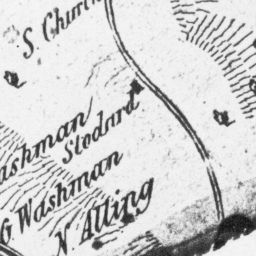 S. Church
ashman
Stodard
G Washman
N. Alting